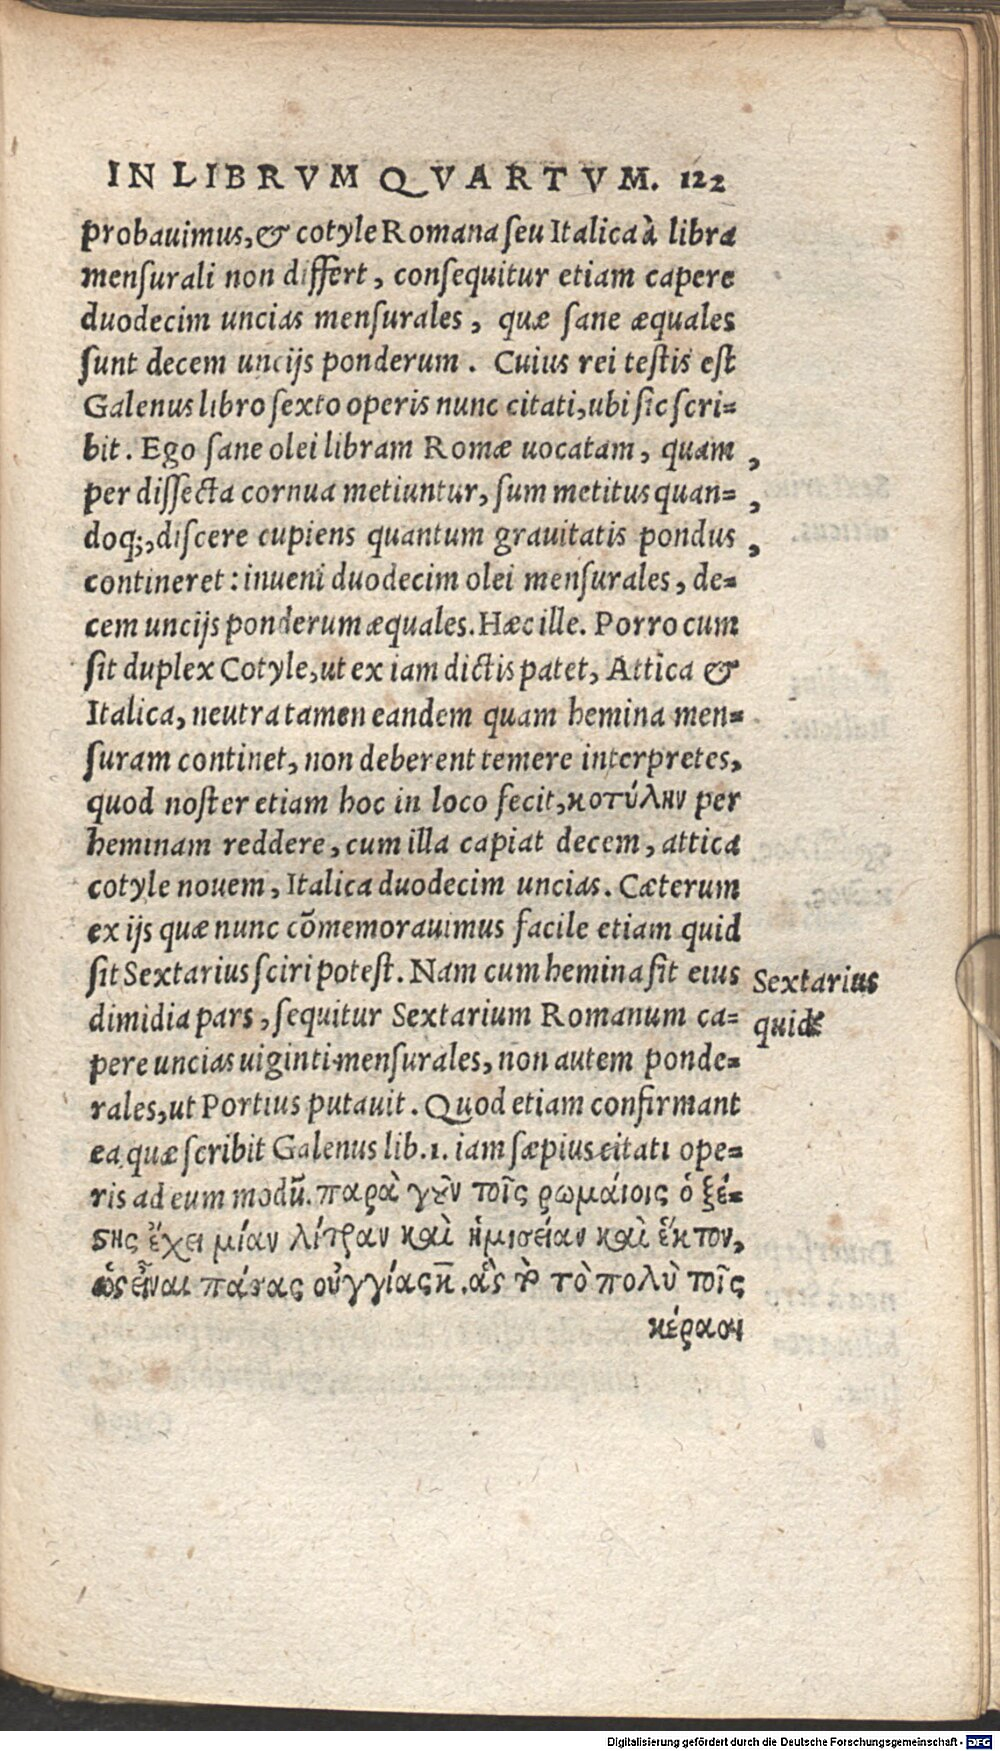 IN LIBRVM QVARTVM. 122
probauimus, & cotyle Romana seu Italica à libra
mensurali non differt, consequitur etiam capere
duodecim uncias mensurales, quæ sane æquales
sunt decem uncijs ponderum. Cuius rei testis est
Galenus libro sexto operis nunc citati, ubi sic scri=
bit. Ego sane olei libram Romæ uocatam, quam ,
per dissecta cornua metiuntur, sum metitus quan= ,
doq;, discere cupiens quantum grauitatis pondus ,
contineret: inueni duodecim olei mensurales, de=
cem uncijs ponderum æquales. Hæc ille. Porro cum
sit duplex Cotyle, ut ex iam dictis patet, Attica &
Italica, neutra tamen eandem quam hemina men=
suram continet, non deberent temere interpretes,
quod noster etiam hoc in loco fecit, κοτύλην per
heminam reddere, cum illa capiat decem, attica
cotyle nouem, Italica duodecim uncias. Cæterum
ex ijs quæ nunc cōmemorauimus facile etiam quid
sit Sextarius sciri potest. Nam cum hemina sit eius
dimidia pars, sequitur Sextarium Romanum ca=
pere uncias uiginti mensurales, non autem ponde=
rales, ut Portius putauit. Quod etiam confirmant
ea quæ scribit Galenus lib. 1. iam sæpius citati ope=
ris ad eum modū. παρὰ γοῦν τοῖς ῥωμαίοις ὁ ξέ=
στης ἔχει μίαν λίτραν καὶ ἡμισείαν καὶ ἕκτον,
ὡς εἶναι πάσας οὐγγίας κ̄. ἃς ὡς τὸ πολὺ τοῖς
κέρασι
Sextarius
quid
Digitalisierung gefördert durch die Deutsche Forschungsgemeinschaft - DFG